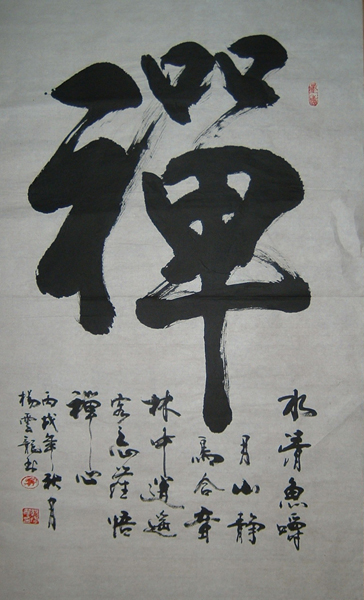 禪
水清魚嚼
月山靜
鳥合聲
林中逍遙
客志在悟
禪心
丙戌年秋月
楊雲龍書